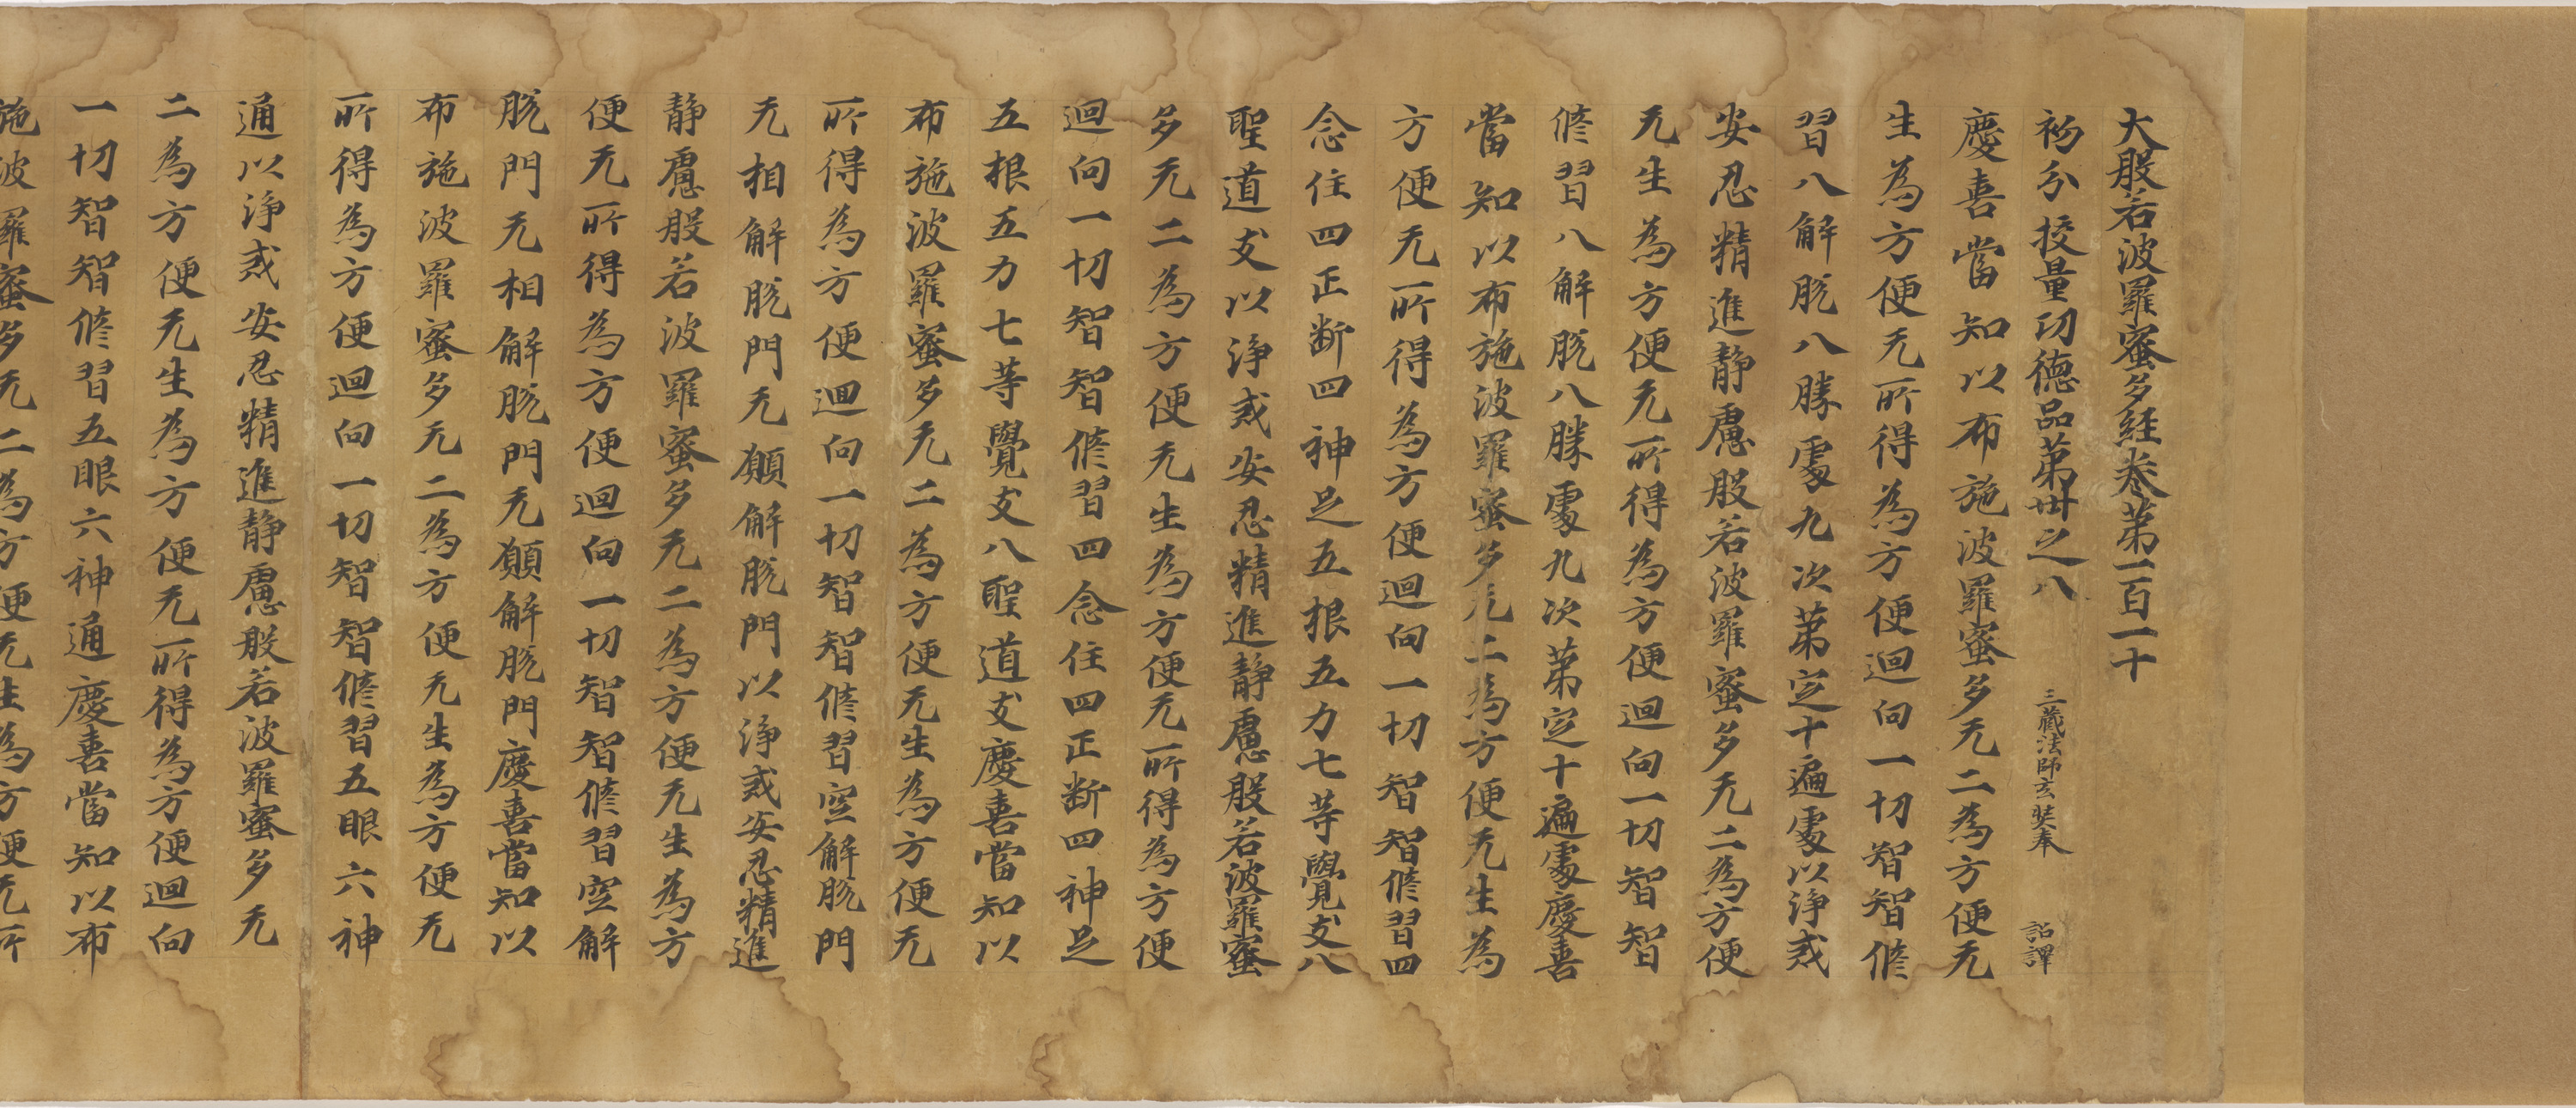 大般若波羅蜜多經卷第一百一十
初分挍量功德品第卅之八 三藏法師玄奘奉 詔譯
慶喜當知以布施波羅蜜多无二為方便无
生為方便无所得為方便迴向一切智智修
習八解脫八勝處九次第定十遍處以淨戒
安忍精進靜慮般若波羅蜜多无二為方便
无生為方便无所得為方便迴向一切智智
修習八解脫八勝處九次第定十遍處慶喜
當知以布施波羅蜜多无二為方便无生為
方便无所得為方便迴向一切智智修習四
念住四正斷四神足五根五力七等覺支八
聖道支以淨戒安忍精進靜慮般若波羅蜜
多无二為方便无生為方便无所得為方便
迴向一切智智修習四念住四正斷四神足
五根五力七等覺支八聖道支慶喜當知以
布施波羅蜜多无二為方便无生為方便无
所得為方便迴向一切智智修習空解脫門
无相解脫門无願解脫門以淨戒安忍精進
靜慮般若波羅蜜多无二為方便无生為方
便无所得為方便迴向一切智智修習空解
脫門无相解脫門无願解脫門慶喜當知以
布施波羅蜜多无二為方便无生為方便无
所得為方便迴向一切智智修習五眼六神
通以淨戒安忍精進靜慮般若波羅蜜多无
二為方便无生為方便无所得為方便迴向
一切智智修習五眼六神通慶喜當知以布
施波羅蜜多无二為方便无生為方便无所